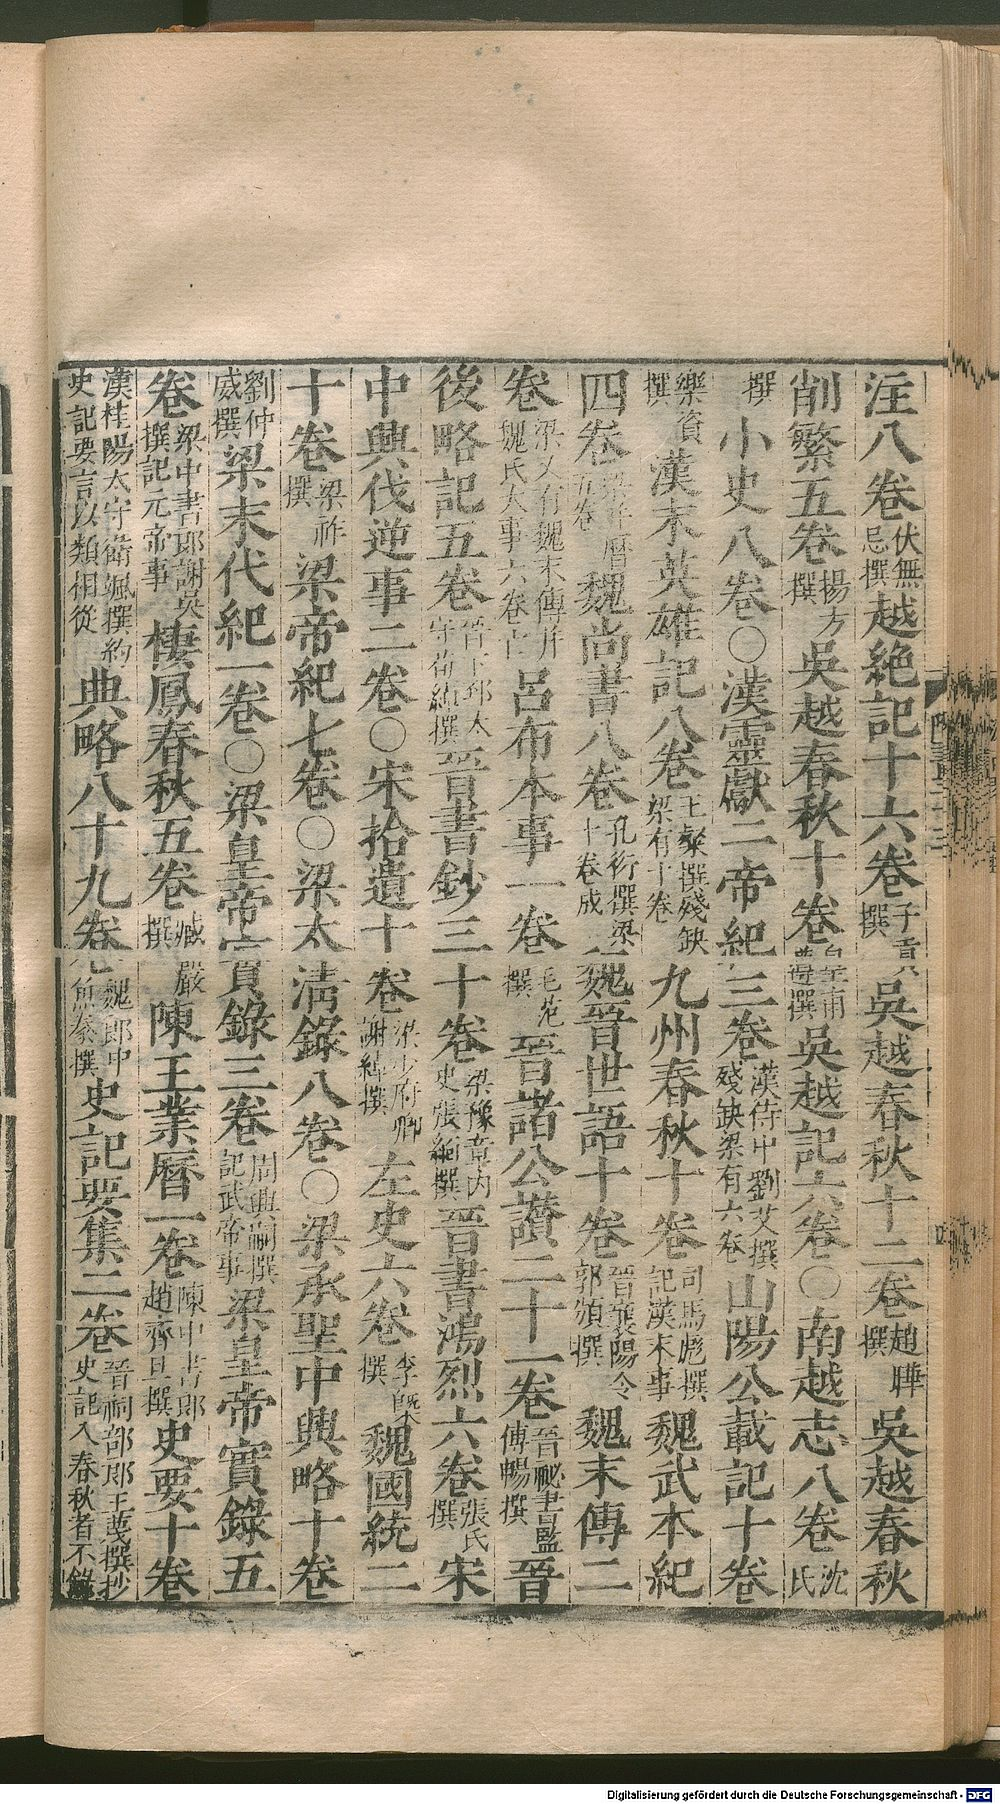 注八卷伏無忌撰越絕記十六卷子貢撰吳越春秋十二卷趙曄撰吳越春秋
削繁五卷揚方撰吳越春秋十卷皇甫遵撰吳越記六卷〇南越志八卷沈氏
撰小史八卷〇漢靈獻二帝紀三卷漢侍中劉艾撰殘缺梁有六卷山陽公載記十卷
樂資撰漢末英雄記八卷王粲撰殘缺梁有十卷九州春秋十卷司馬彪撰記漢末事魏武本紀
四卷梁并曆五卷魏尚書八卷孔衍撰梁十卷成魏晉世語十卷晉襄陽令郭頒撰魏末傳二
卷梁又有魏末傳并魏氏大事六卷亡呂布本事一卷毛范撰晉諸公讚二十一卷晉祕書監傅暢撰晉
後略記五卷晉下邳太守荀綽撰晉書鈔三十卷梁豫章內史張緬撰晉書鴻烈六卷張氏撰宋
中興伐逆事二卷〇宋拾遺十卷梁少府卿謝綽撰左史六卷李槩撰魏國統二
十卷梁祚撰梁帝紀七卷〇梁太淸錄八卷〇梁承聖中興略十卷
劉仲威撰梁末代紀一卷〇梁皇帝實錄三卷周興嗣撰記武帝事梁皇帝實錄五
卷梁中書郎謝吳撰記元帝事棲鳳春秋五卷臧嚴撰陳王業曆一卷陳中書郎趙齊旦撰史要十卷
漢桂陽太守衛颯撰約史記要言以類相從典略八十九卷魏郎中魚豢撰史記要集二卷晉祠部郎王蔑撰抄史記入春秋者不錄
Digitalisierung gefördert durch die Deutsche Forschungsgemeinschaft - DFG